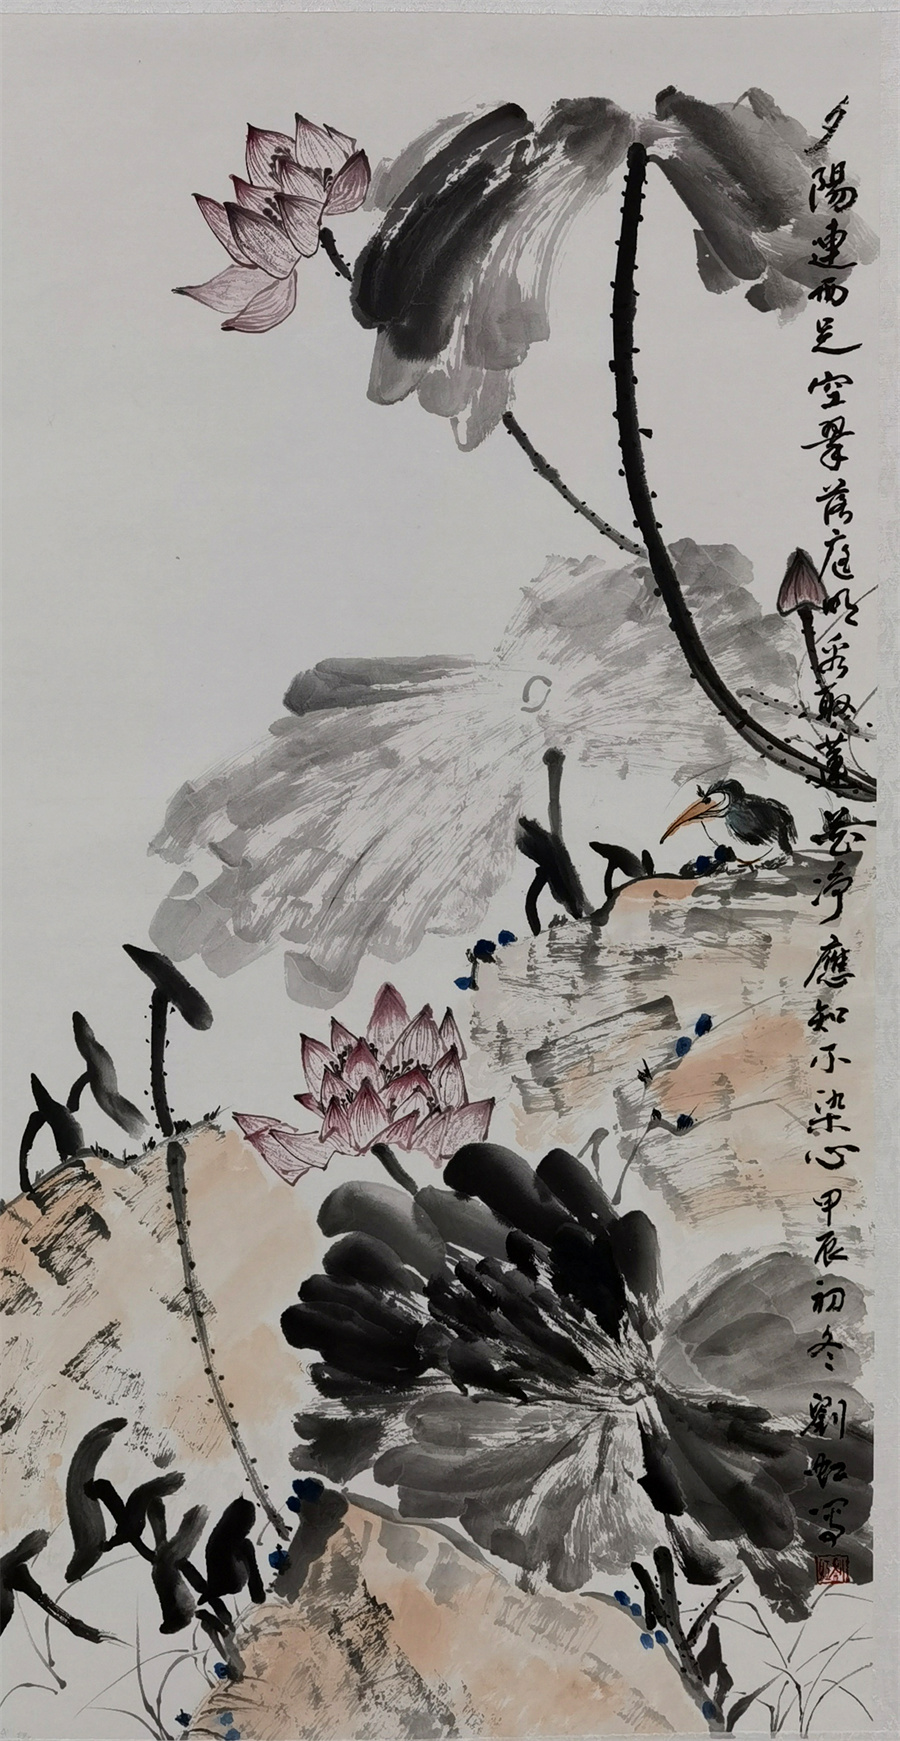 夕陽連雨足空翠落庭陰看取蓮花淨應知不染心甲辰初冬劉虹寫